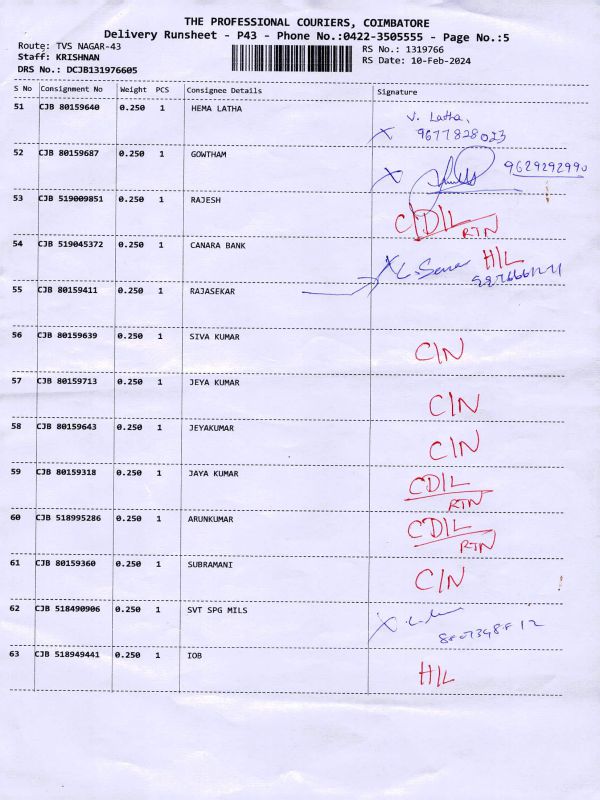 THE PROFESSIONAL COURIERS, COIMBATORE
Delivery Runsheet - P43 - Phone No.:0422-3505555 - Page No.:5
Route: TVS NAGAR-43 RS No.: 1319766
Staff: KRISHNAN RS Date: 10-Feb-2024
DRS No.: DCJB131976605
S No Consignment No Weight PCS Consignee Details Signature
51 CJB 80159640 0.250 1 HEMA LATHA V. Latha,
X 9677828023
52 CJB 80159687 0.250 1 GOWTHAM X 9629292990
53 CJB 519009851 0.250 1 RAJESH C/D/L
RTN
54 CJB 519045372 0.250 1 CANARA BANK H/L
55 CJB 80159411 0.250 1 RAJASEKAR
56 CJB 80159639 0.250 1 SIVA KUMAR C/N
57 CJB 80159713 0.250 1 JEYA KUMAR C/N
58 CJB 80159643 0.250 1 JEYAKUMAR C/N
59 CJB 80159318 0.250 1 JAYA KUMAR CD/L
RTN
60 CJB 518995286 0.250 1 ARUNKUMAR CD/L
RTN
61 CJB 80159360 0.250 1 SUBRAMANI C/N
62 CJB 518490906 0.250 1 SVT SPG MILS X
63 CJB 518949441 0.250 1 IOB H/L